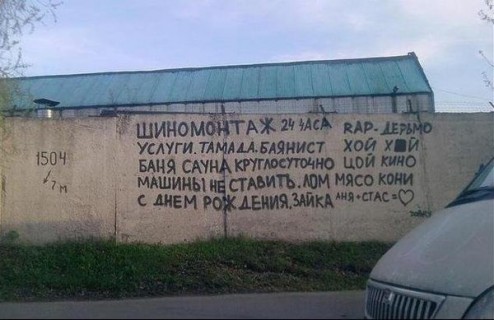 ШИНОМОНТАЖ 24 ЧАСА RAP-ДЕРЬМО
УСЛУГИ.ТАМАДА.БАЯНИСТ ХОЙ Х■Й
БАНЯ САУНА КРУГЛОСУТОЧНО ЦОЙ КИНО
МАШИНЫ НЕ СТАВИТЬ.ЛОМ МЯСО КОНИ
С ДНЕМ РОЖДЕНИЯ.ЗАЙКА АНЯ+СТАС=♡
1504
7м